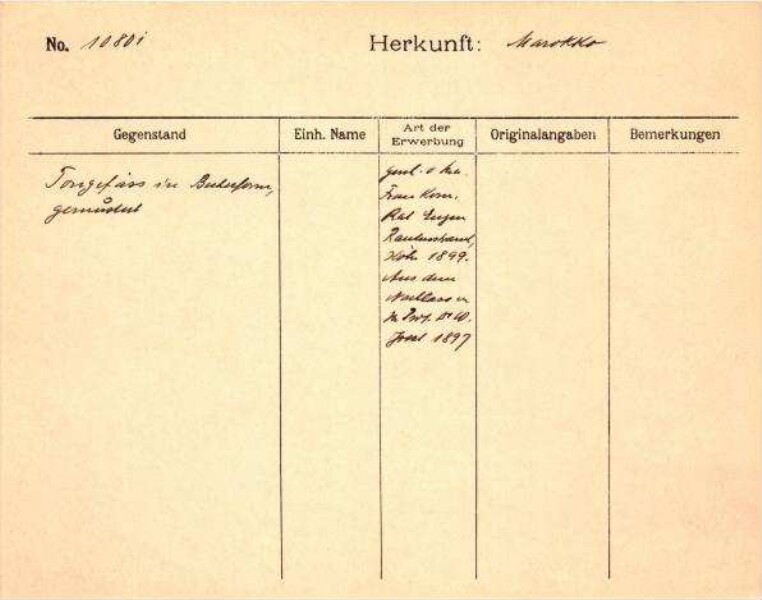 No. 1080i Herkunft: Marokko
Gegenstand Einh. Name Art der Erwerbung Originalangaben Bemerkungen
Tongefäss in Becherform,
gemustert
Frau Kom.
Rat Eugen
Rautenstrauch,
Köln 1899.
Aus dem
Nachlass
Prof. Dr W.
Joest 1897